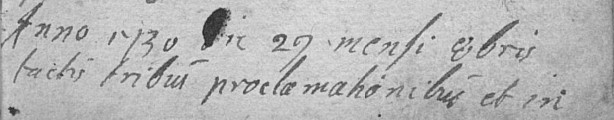 Anno 1730 Die 29 mensi 8bris
factis tribus proclamationibus et in